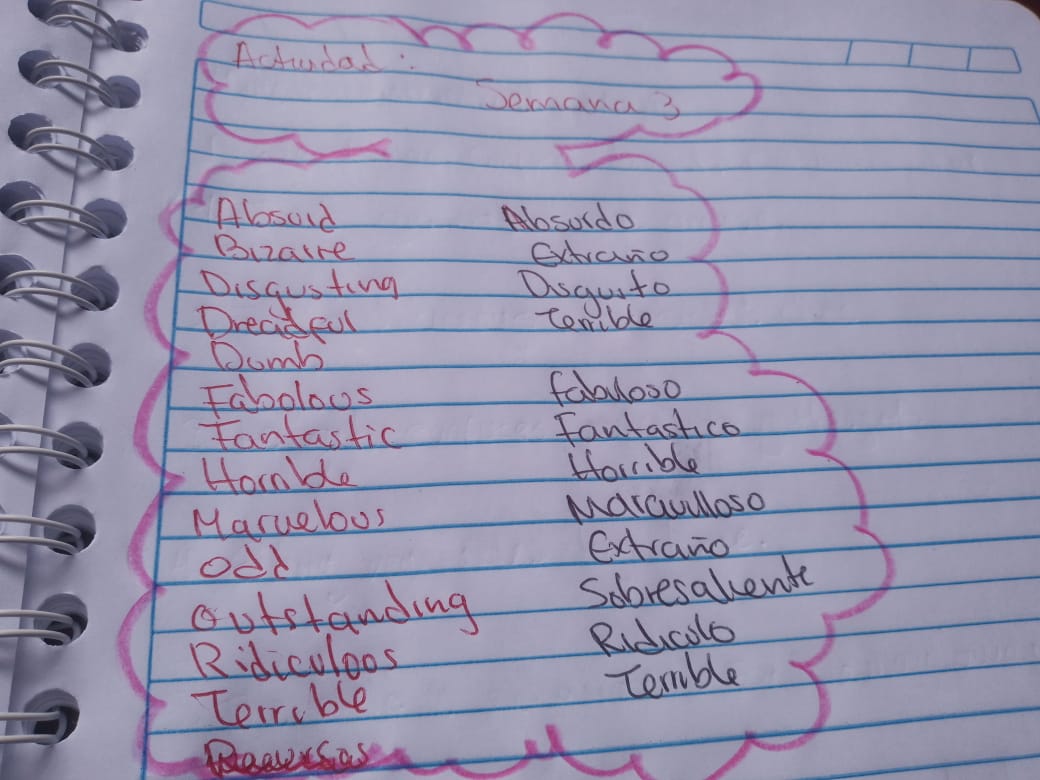 Actividad:
Semana 3
Absurd Absurdo
Bizarre Extraño
Disgusting Disgusto
Dreadful Terrible
Dumb
Fabolous fabuloso
Fantastic Fantastico
Horrible Horrible
Marvelous Maravilloso
Odd Extraño
Outstanding Sobresaliente
Ridiculous Ridiculo
Terrible Terrible